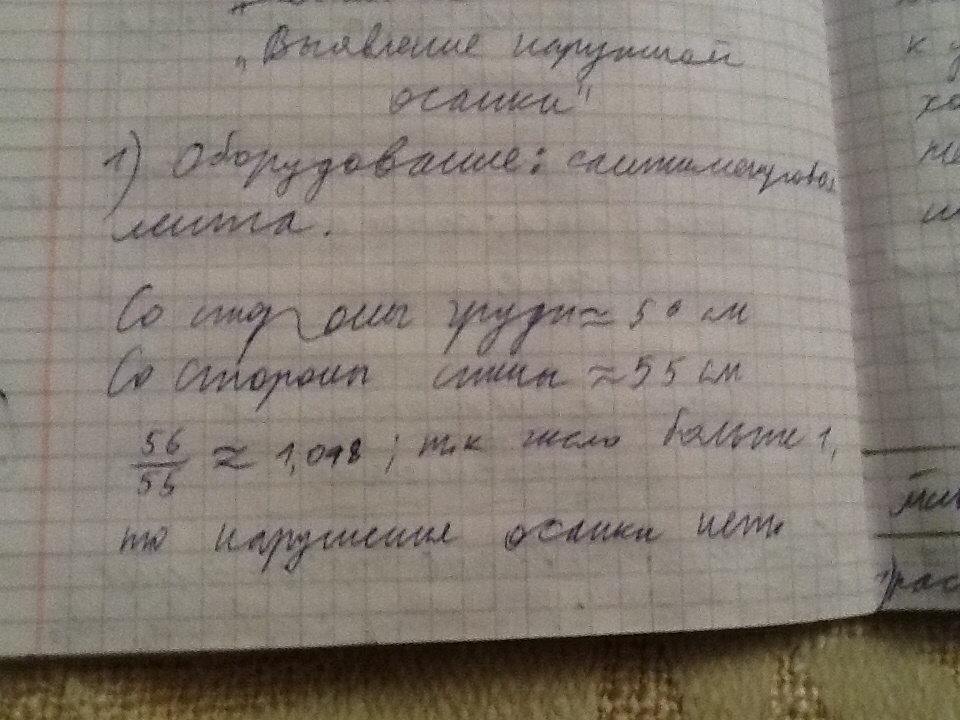 „Выявление нарушений
осанки"
1) Оборудование: сантиметровая
лента.
Со стороны груди ≈ 56 см
Со стороны спины ≈ 55 см
56/55 ≈ 1,018; т.к число больше 1,
то нарушения осанки нет.
к